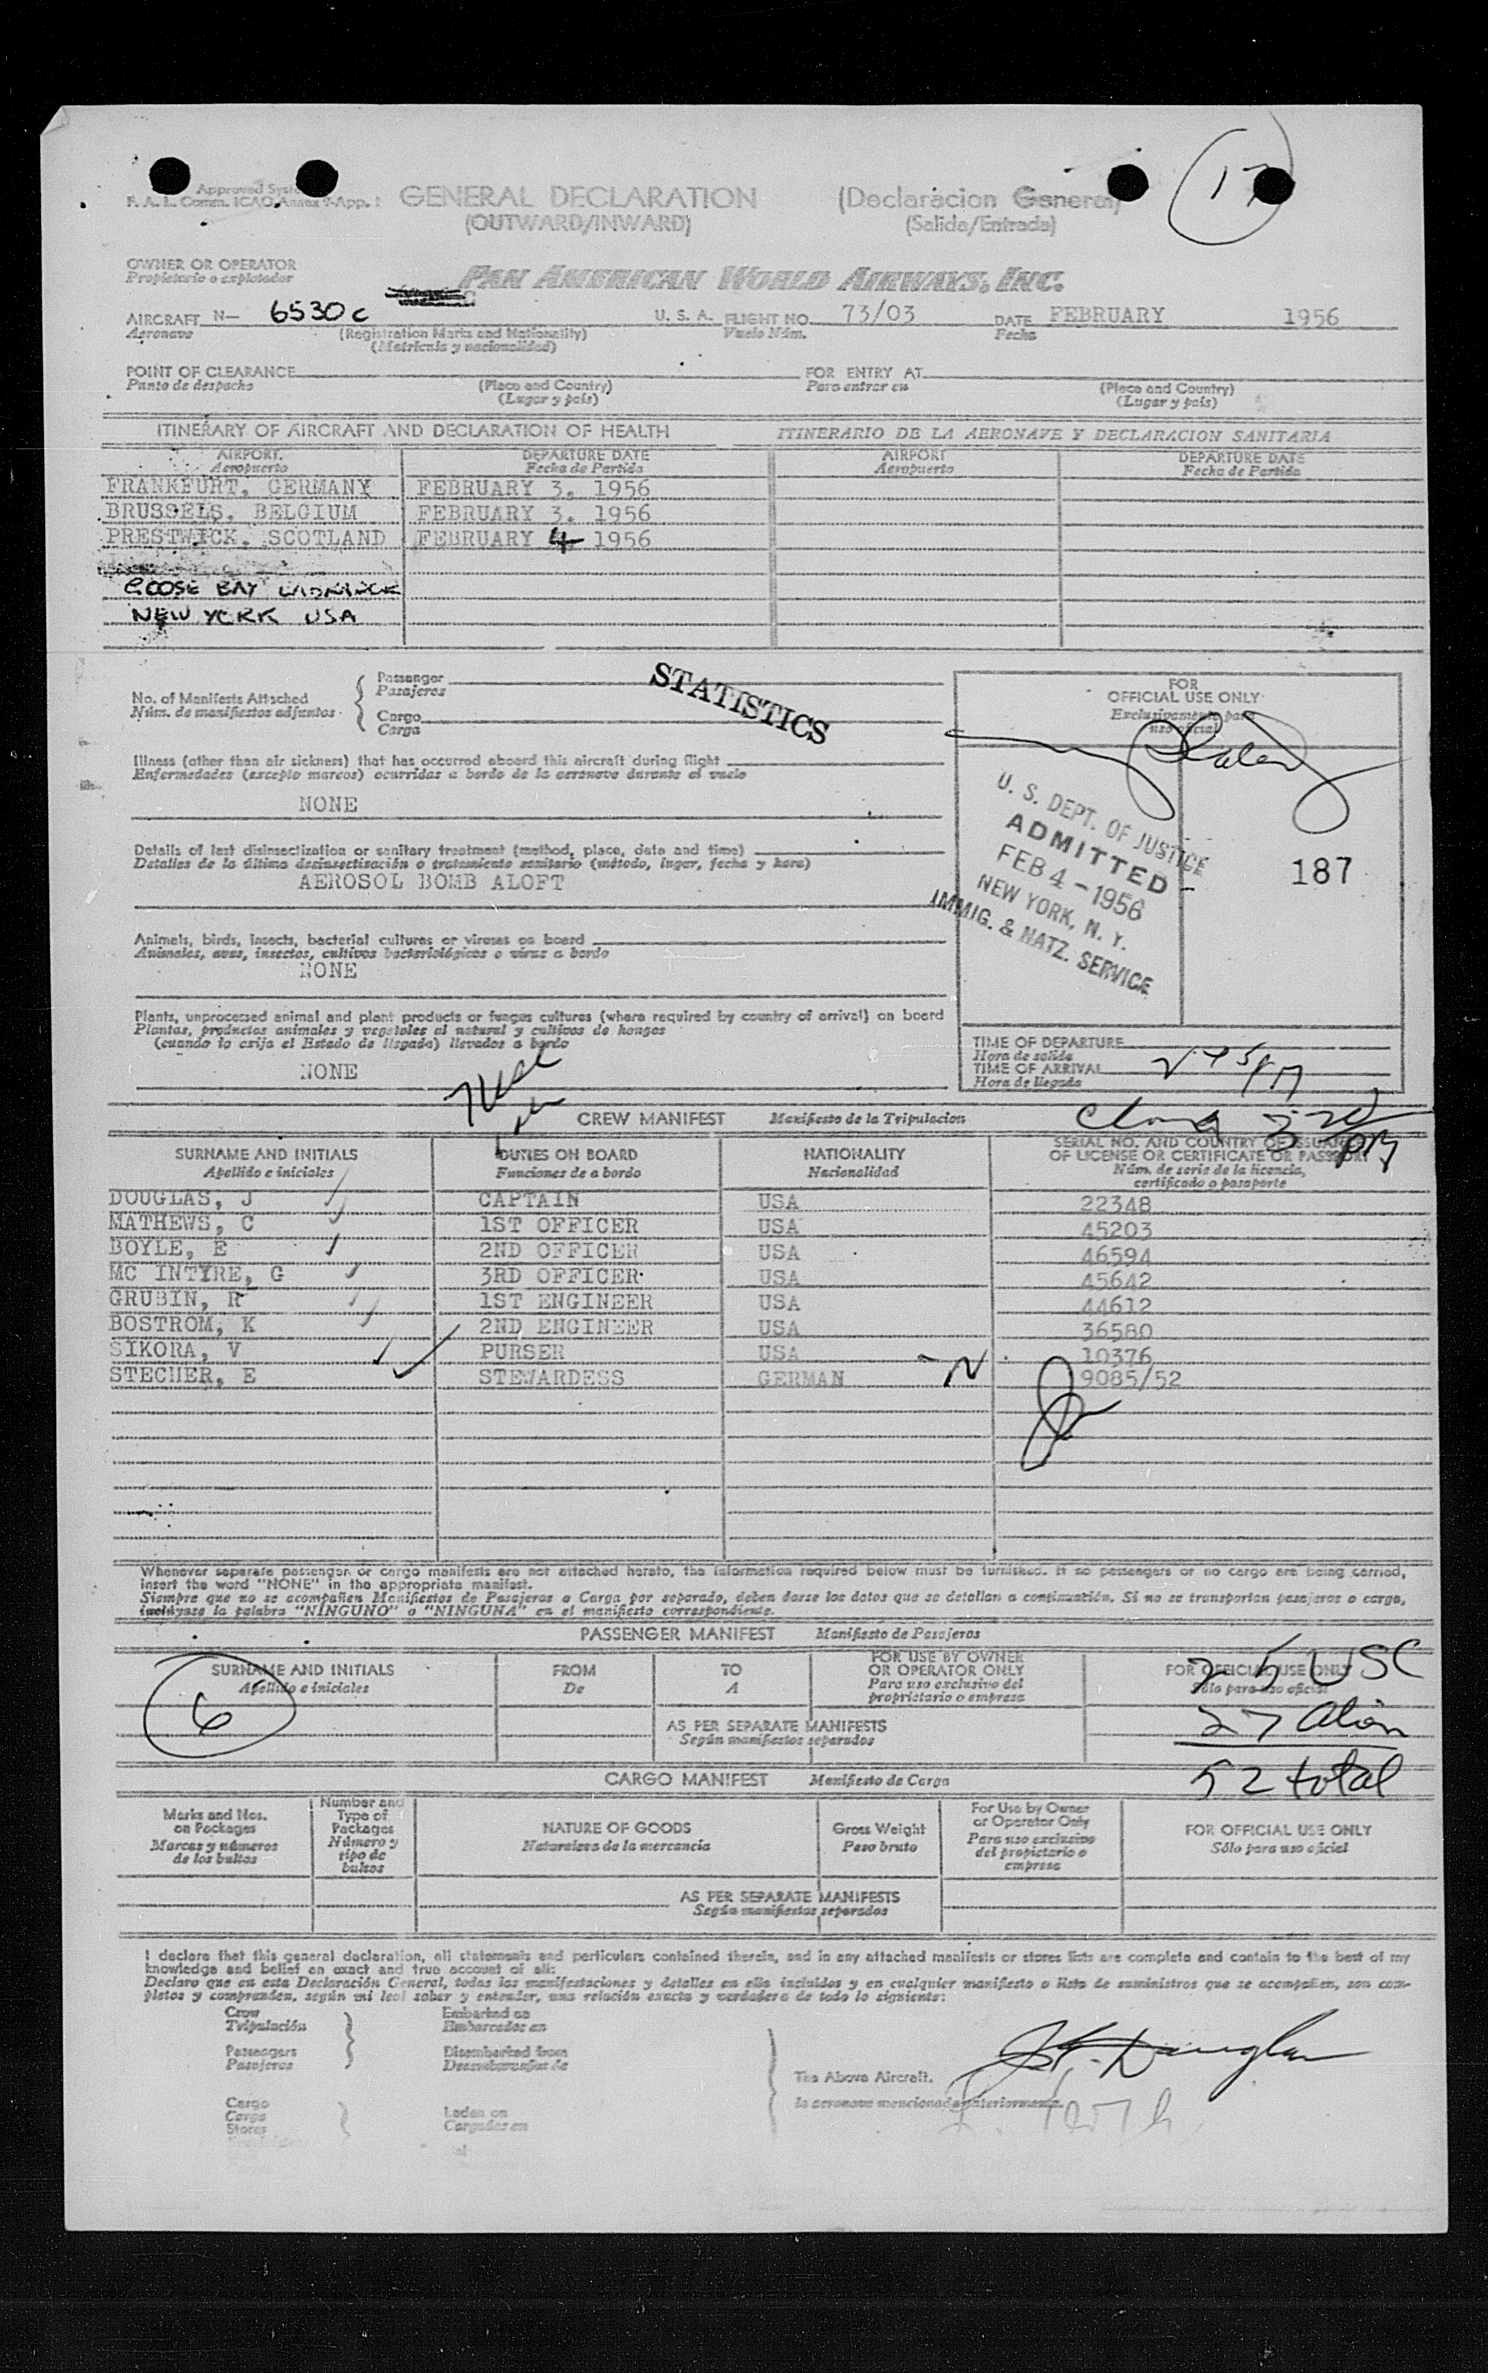 17
Approved
F. A. L. Comm. ICAO Annex 9-App. 1
GENERAL DECLARATION (Declaracion General)
(OUTWARD/INWARD) (Salida/Entrada)
OWNER OR OPERATOR
Propietario o explotador
PAN AMERICAN WORLD AIRWAYS, INC.
AIRCRAFT N- 6530C U. S. A. FLIGHT NO. 73/03 DATE FEBRUARY 1956
Aeronave (Registration Marks and Nationality) Vuelo Núm. Fecha
(Matricula y nacionalidad)
POINT OF CLEARANCE FOR ENTRY AT
Punto de despacho (Place and Country) Para entrar en (Place and Country)
(Lugar y país) (Lugar y país)
ITINERARY OF AIRCRAFT AND DECLARATION OF HEALTH ITINERARIO DE LA AERONAVE Y DECLARACION SANITARIA
AIRPORT DEPARTURE DATE AIRPORT DEPARTURE DATE
Aeropuerto Fecha de Partida Aeropuerto Fecha de Partida
FRANKFURT, GERMANY FEBRUARY 3. 1956
BRUSSELS, BELGIUM FEBRUARY 3. 1956
PRESTWICK, SCOTLAND FEBRUARY 4 1956
GOOSE BAY
NEW YORK USA
STATISTICS
No. of Manifests Attached
Núm. de manifiestos adjuntos
Passenger
Pasajeros
Cargo
Carga
Illness (other than air sickness) that has occurred aboard this aircraft during flight
Enfermedades (excepto mareos) ocurridas a bordo de la aeronave durante el vuelo
NONE
Details of last disinsectization or sanitary treatment (method, place, date and time)
Detalles de la última desinsectisación o tratamiento sanitario (método, lugar, fecha y hora)
AEROSOL BOMB ALOFT
Animals, birds, insects, bacterial cultures or viruses on board
Animales, aves, insectos, cultivos bacteriológicos o virus a bordo
NONE
Plants, unprocessed animal and plant products or fungus cultures (where required by country of arrival) on board
Plantas, productos animales y vegetales al natural y cultivos de hongos
(cuando lo exija el Estado de llegada) llevados a bordo
NONE
FOR
OFFICIAL USE ONLY
Exclusivamente para
uso oficial
U. S. DEPT. OF JUSTICE
ADMITTED
FEB 4 - 1956
NEW YORK, N. Y.
IMMIG. & NATZ. SERVICE
187
TIME OF DEPARTURE
Hora de salida
TIME OF ARRIVAL 245 PM
Hora de llegada
CREW MANIFEST Manifiesto de la Tripulacion
SURNAME AND INITIALS DUTIES ON BOARD NATIONALITY SERIAL NO. AND COUNTRY OF ISSUANCE
OF LICENSE OR CERTIFICATE OR PASSPORT
Apellido e iniciales Funciones de a bordo Nacionalidad Núm. de serie de la licencia,
certificado o pasaporte
DOUGLAS, J CAPTAIN USA 22348
MATHEWS, C 1ST OFFICER USA 45203
BOYLE, E 2ND OFFICER USA 46594
MC INTYRE, G 3RD OFFICER USA 45642
GRUBIN, R 1ST ENGINEER USA 44612
BOSTROM, K 2ND ENGINEER USA 36580
SIKORA, V PURSER USA 10376
STECHER, E STEWARDESS GERMAN 9085/52
Whenever separate passenger or cargo manifests are not attached hereto, the information required below must be furnished. If no passengers or no cargo are being carried,
insert the word "NONE" in the appropriate manifest.
Siempre que no se acompañen Manifiestos de Pasajeros o Carga por separado, deben darse los datos que se detallan a continuación. Si no se transportan pasajeros o carga,
inclúyase la palabra "NINGUNO" o "NINGUNA" en el manifiesto correspondiente.
PASSENGER MANIFEST Manifiesto de Pasajeros
SURNAME AND INITIALS FROM TO FOR USE BY OWNER
OR OPERATOR ONLY FOR OFFICIAL USE ONLY
Apellido e iniciales De A Para uso exclusivo del
propietario o empresa Sólo para uso oficial
6
AS PER SEPARATE MANIFESTS
Según manifiestos separados
25 USC
27 alien
52 total
CARGO MANIFEST Manifiesto de Carga
Marks and Nos.
on Packages
Marcas y números
de los bultos
Number and
Type of
Packages
Número y
tipo de
bultos
NATURE OF GOODS
Naturaleza de la mercancía
Gross Weight
Peso bruto
For Use by Owner
or Operator Only
Para uso exclusivo
del propietario o
empresa
FOR OFFICIAL USE ONLY
Sólo para uso oficial
AS PER SEPARATE MANIFESTS
Según manifiestos separados
I declare that this general declaration, all statements and particulars contained therein, and in any attached manifests or stores lists are complete and contain to the best of my
knowledge and belief an exact and true account of all:
Declaro que en esta Declaración General, todas las manifestaciones y detalles en ella incluidos y en cualquier manifiesto o lista de suministros que se acompañen, son com-
pletos y comprenden, según mi leal saber y entender, una relación exacta y verdadera de todo lo siguiente:
Crew
Tripulación
Passengers
Pasajeros
Cargo
Carga
Stores
Embarked on
Embarcados en
Disembarked from
Desembarcados de
Laden on
Cargados en
The Above Aircraft.
la aeronave mencionada anteriormente.